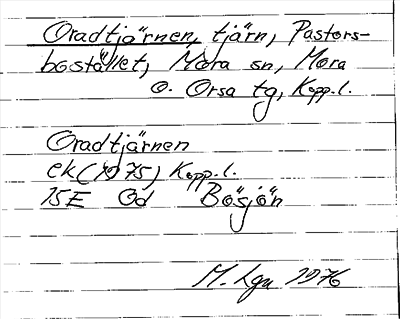 Oradtjärnen, tjärn, Pastors-
bostället, Mora sn, Mora
o. Orsa tg, Kopp. l.
Oradtjärnen
ek (1975) Kopp. l.
15E 0d Bösjön
M. Lgn 1976